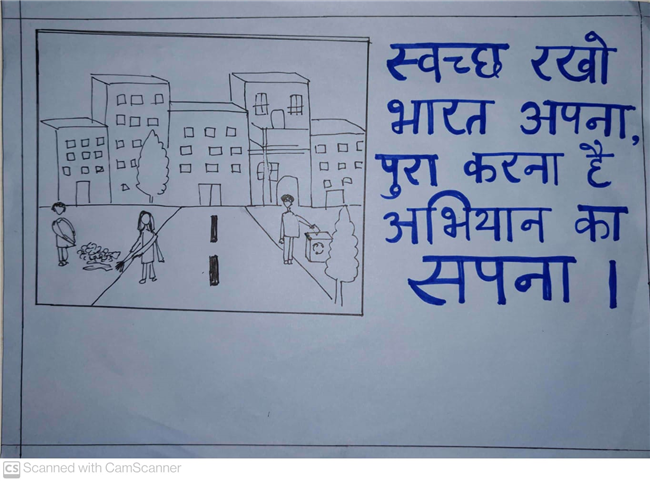 स्वच्छ रखो
भारत अपना,
पुरा करना है
अभियान का
सपना।
CS Scanned with CamScanner